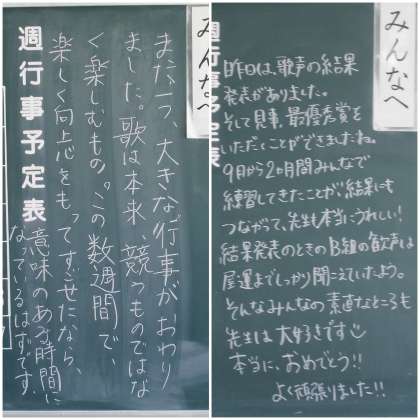 みんなへ
また一つ、大きな行事がおわり
ました。歌は本来、競うものではな
く楽しむもの。この数週間で、
楽しく向上心をもってすごせたなら、
意味のある時間に
なっているはずです。
週行事予定表
みんなへ
週行事予定表
昨日は、歌声の結果
発表がありました。
そして見事、最優秀賞を
いただくことができましたね。
9月から2ヶ月間みんなで
練習してきたことが、結果にも
つながって、先生も本当にうれしい!
結果発表のときのB組の歓声は
屋運までしっかり聞こえていたよう。
そんなみんなの素直なところも
先生は大好きです
本当に、おめでとう!!
よく頑張りました!!